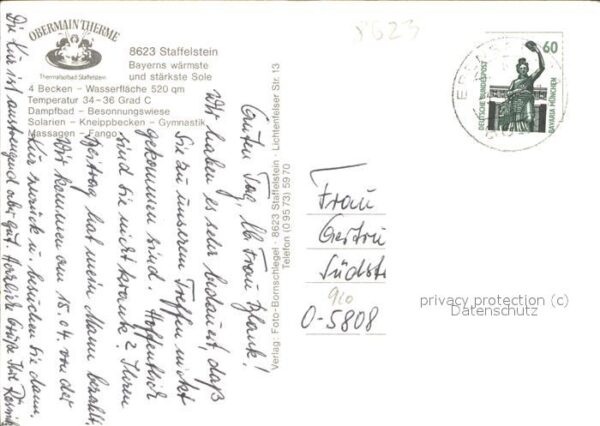 8623
OBERMAIN THERME
Thermalsolbad Staffelstein
8623 Staffelstein
Bayerns wärmste
und stärkste Sole
4 Becken - Wasserfläche 520 qm
Temperatur 34-36 Grad C
Dampfbad - Besonnungswiese
Solarien - Kneippbecken - Gymnastik
Massagen - Fango
Guten Tag, lb. Frau Blank!
Wir haben es sehr bedauert, daß
Sie zu unserem Treffen nicht
gekommen sind. Hoffentlich
sind Sie nicht krank? Ihren
Beitrag hat mein Mann bezahlt.
Wir kommen am 15.04. von der
Kur zurück u. besuchen Sie dann.
Die Kur ist anstrengend aber gut. Herzliche Grüße Ihre
Verlag · Foto-Bornschlegel · 8623 Staffelstein · Lichtenfelser Str. 13
Telefon (0 95 73) 59 70
60
DEUTSCHE BUNDESPOST
BAVARIA MÜNCHEN
Frau
Gertru
Südstr
910
O-5808
privacy protection (c)
Datenschutz